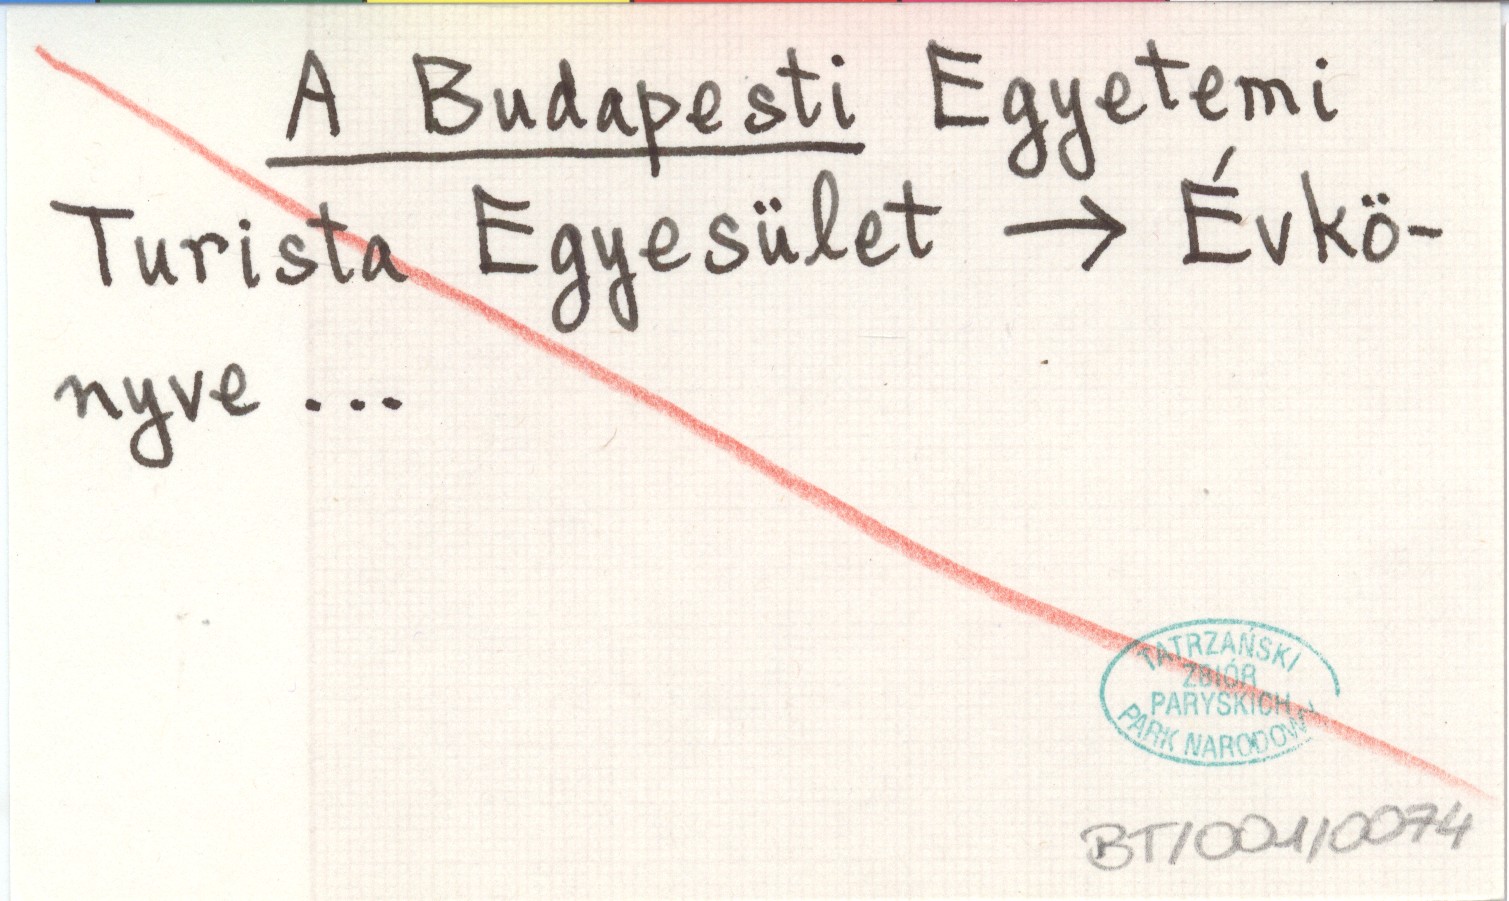 A Budapesti Egyetemi
Turista Egyesület → Évkö-
nyve ...
TATRZAŃSKI
ZBIÓR
PARYSKICH
PARK NARODOWY
BT/001/0074